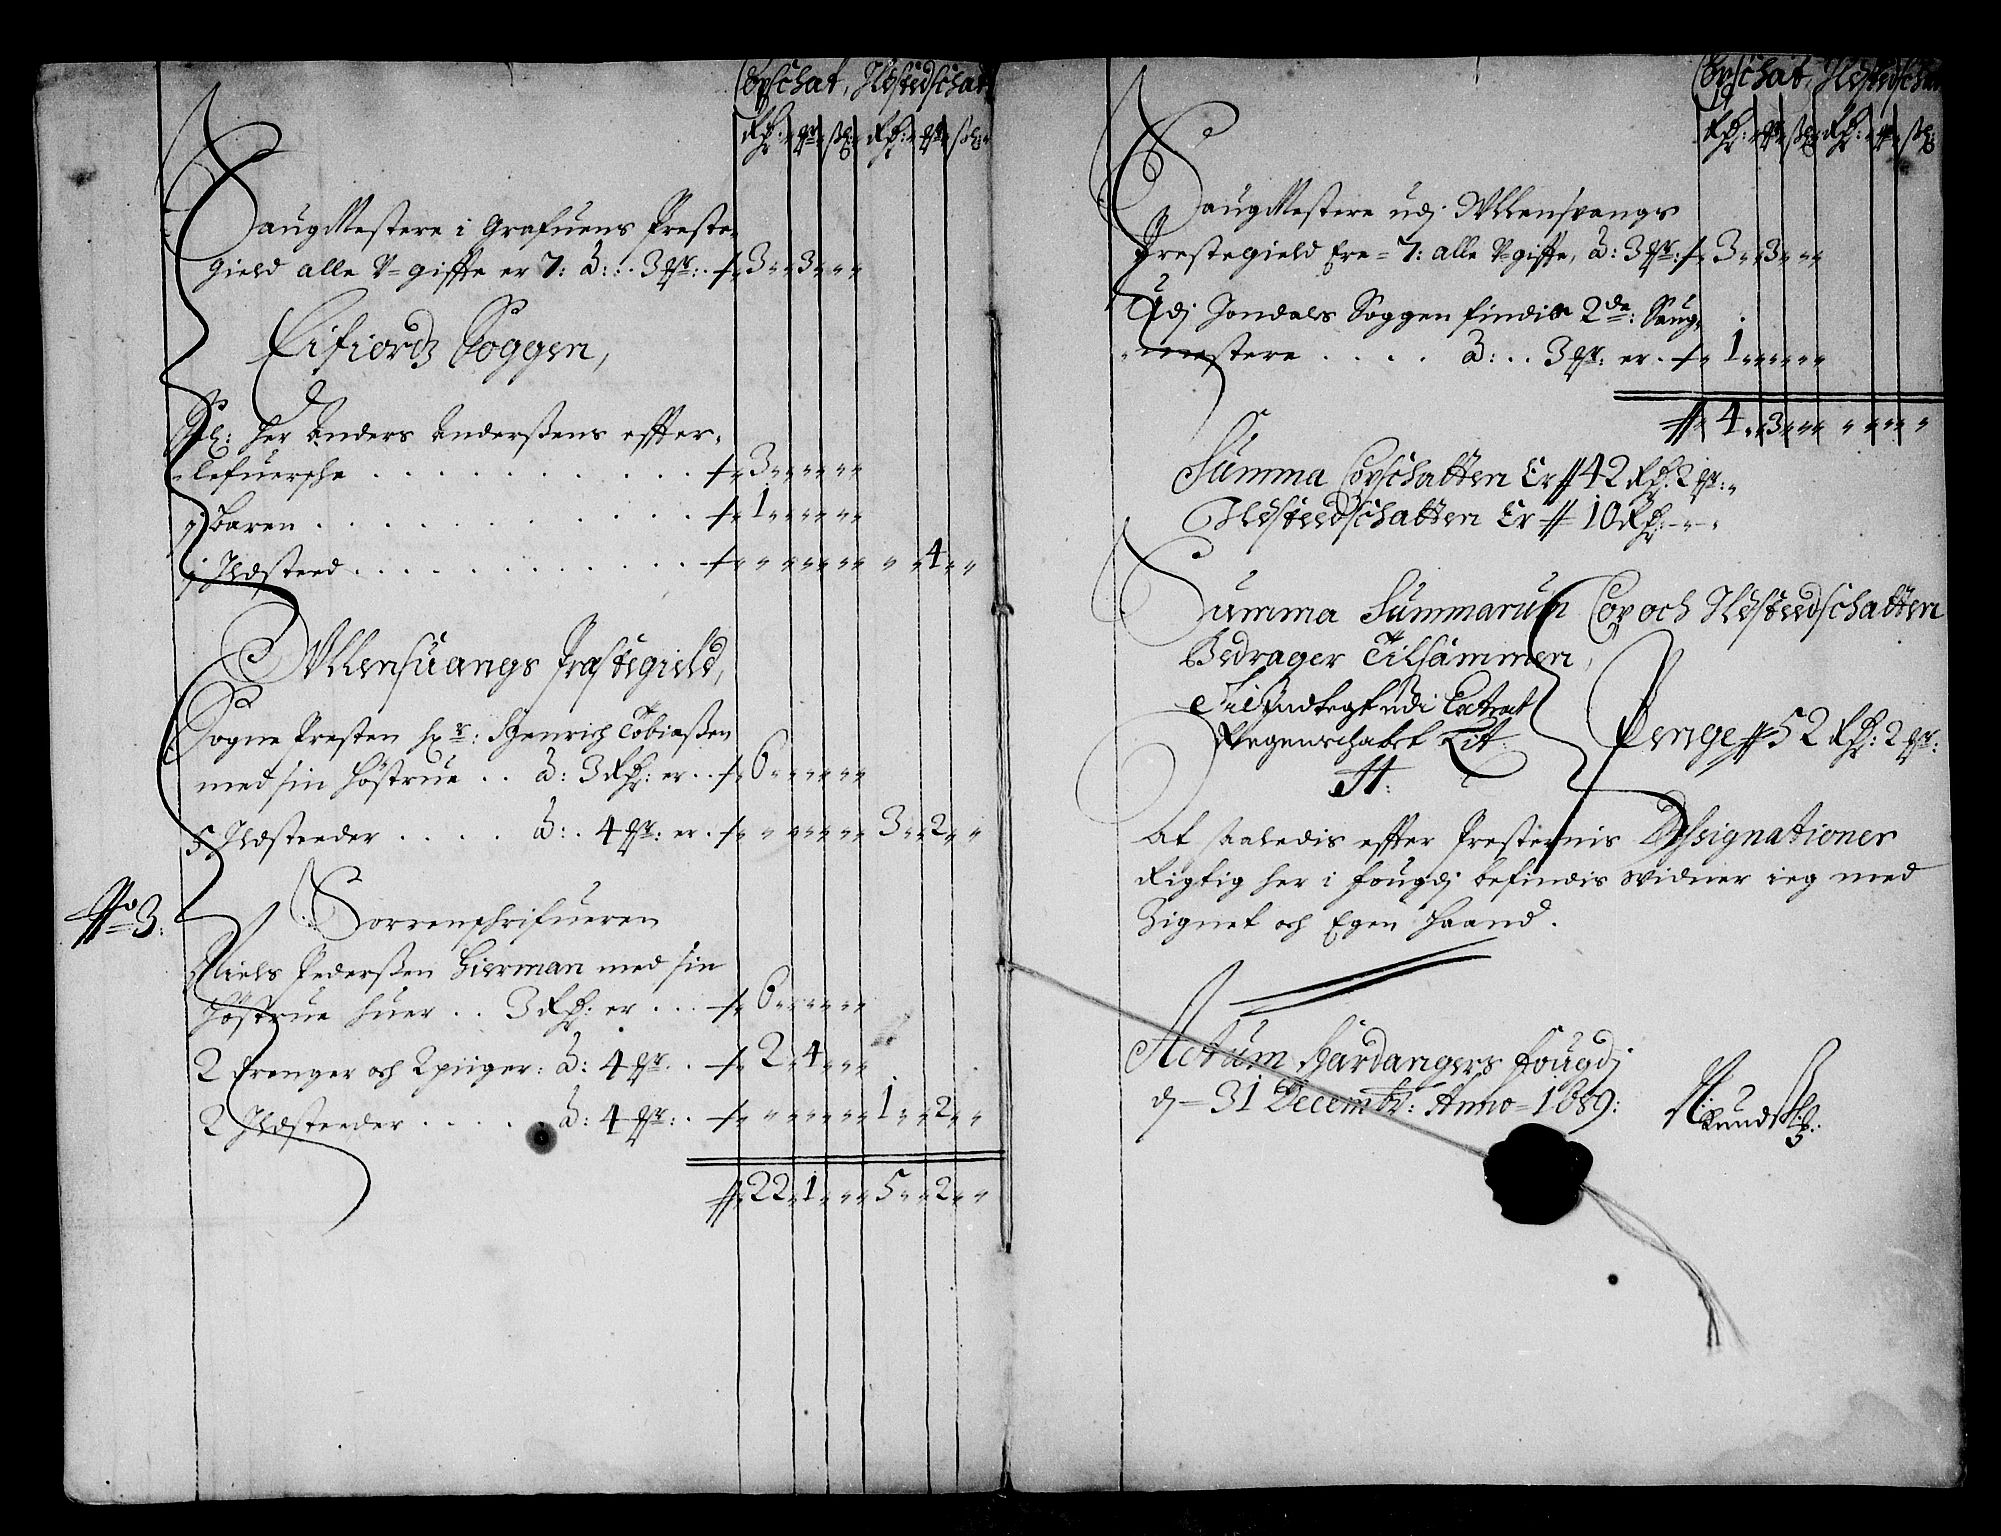 Copschat, Ildstedschat
Rdr: ort ß: Rdr: ort ß:
SaugMestere i Grafuens Preste-
gield alle V-giffte er 7: à: . . 3 ort: . - 3 - 3 -
Eifiordz Soggen,
Sl: Her Anders Anderßens effter-
lefuersche . . . . - 3 -
j baren . . . . - 1 -
j Ildsteed . . . . - 4 -
Vllensuangs Præstegield,
Sogne Presten Hr: Henrich Tobiaßen
med sin Høstrue . . à: 3 Rdr: er . . - 6 -
5 Ildsteeder . . . . à: . 4 ort: er . - 3 - 2 -
No 3:
Sorrenschrifueren
Niels Pederßen Bierman med sin
Høstrue huer . . 3 Rdr: er . . . - 6 -
2 drenger och 2 piiger: à: 4 ort . . - 2 - 4 -
2 Ildsteeder . . . . à: 4 ort: . . - 1 - 2 -
22 - 1 - 5 - 2 -
Copschat, Ildstedschat
Rdr: ort ß: Rdr: ort ß:
SaugMestere udj Wllensvangs
Prestegield Ere = 7: alle V-giffte, à: 3 ort: - 3 - 3 -
Udj Jondals Soggen findis 2de: Saug-
mestere . . . . à: . . 3 ort: er . - 1 -
4 - 3 -
Summa Copschatten Er 42 Rdr: 2 ort:
Ildsteedschatten Er 10 Rdr:
Summa Summarum Cop och Ildsteedschatten
Bedrager Tilsammen,
Til Indtegt udi Extract
Regenschabet Lit:
A:
Penge 52 Rdr: 2 ort:
At saaledis effter Presternis Designationer
Rigtig her i fougdj befindis Widner ieg med
Zignet och Egen Haand.
Actum Hardangers fougdj
d = 31 Decembr: Anno = 1689: